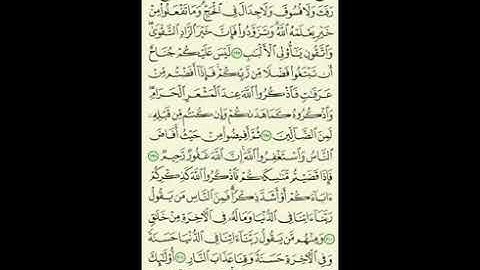 رَفَثَ وَلَا فُسُوقَ وَلَا جِدَالَ فِي الْحَجِّ وَمَا تَفْعَلُوا مِنْ
خَيْرٍ يَعْلَمْهُ اللَّهُ وَتَزَوَّدُوا فَإِنَّ خَيْرَ الزَّادِ التَّقْوَىٰ
وَاتَّقُونِ يَا أُولِي الْأَلْبَابِ ١٩٧ لَيْسَ عَلَيْكُمْ جُنَاحٌ
أَن تَبْتَغُوا فَضْلًا مِّن رَّبِّكُمْ فَإِذَا أَفَضْتُم مِّنْ
عَرَفَاتٍ فَاذْكُرُوا اللَّهَ عِندَ الْمَشْعَرِ الْحَرَامِ
وَاذْكُرُوهُ كَمَا هَدَاكُمْ وَإِن كُنتُم مِّن قَبْلِهِ
لَمِنَ الضَّالِّينَ ١٩٨ ثُمَّ أَفِيضُوا مِنْ حَيْثُ أَفَاضَ
النَّاسُ وَاسْتَغْفِرُوا اللَّهَ إِنَّ اللَّهَ غَفُورٌ رَّحِيمٌ ١٩٩
فَإِذَا قَضَيْتُم مَّنَاسِكَكُمْ فَاذْكُرُوا اللَّهَ كَذِكْرِكُمْ
آبَاءَكُمْ أَوْ أَشَدَّ ذِكْرًا فَمِنَ النَّاسِ مَن يَقُولُ
رَبَّنَا آتِنَا فِي الدُّنْيَا وَمَا لَهُ فِي الْآخِرَةِ مِنْ خَلَاقٍ
٢٠٠ وَمِنْهُم مَّن يَقُولُ رَبَّنَا آتِنَا فِي الدُّنْيَا حَسَنَةً
وَفِي الْآخِرَةِ حَسَنَةً وَقِنَا عَذَابَ النَّارِ ٢٠١ أُولَٰئِكَ